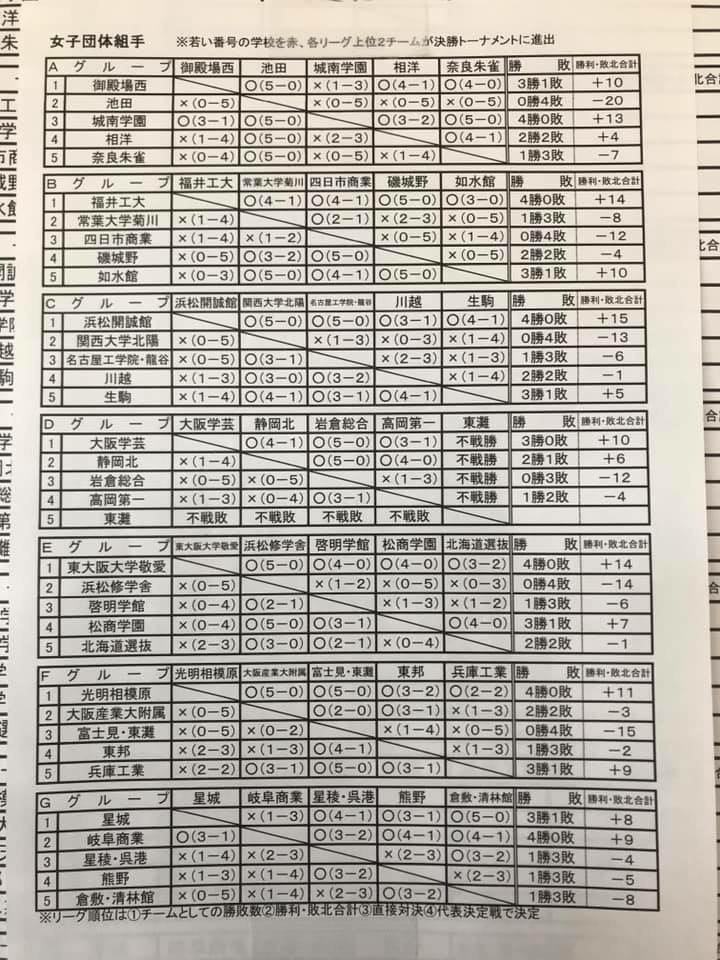 女子団体組手 ※若い番号の学校を赤、各リーグ上位2チームが決勝トーナメントに進出
Aグループ 御殿場西 池田 城南学園 相洋 奈良朱雀 勝 敗 勝利・敗北合計
1 御殿場西 ○(5-0) ×(1-3) ○(4-1) ○(4-0) 3勝1敗 +10
2 池田 ×(0-5) ×(0-5) ×(0-5) ×(0-5) 0勝4敗 -20
3 城南学園 ○(3-1) ○(5-0) ○(3-2) ○(5-0) 4勝0敗 +13
4 相洋 ×(1-4) ○(5-0) ×(2-3) ○(4-1) 2勝2敗 +4
5 奈良朱雀 ×(0-4) ○(5-0) ×(0-5) ×(1-4) 1勝3敗 -7
Bグループ 福井工大 常葉大学菊川 四日市商業 磯城野 如水館 勝 敗 勝利・敗北合計
1 福井工大 ○(4-1) ○(4-1) ○(5-0) ○(3-0) 4勝0敗 +14
2 常葉大学菊川 ×(1-4) ○(2-1) ×(2-3) ×(0-5) 1勝3敗 -8
3 四日市商業 ×(1-4) ×(1-2) ×(0-5) ×(1-4) 0勝4敗 -12
4 磯城野 ×(0-5) ○(3-2) ○(5-0) ×(0-5) 2勝2敗 -4
5 如水館 ×(0-3) ○(5-0) ○(4-1) ○(5-0) 3勝1敗 +10
Cグループ 浜松開誠館 関西大学北陽 名古屋工学院・龍谷 川越 生駒 勝 敗 勝利・敗北合計
1 浜松開誠館 ○(5-0) ○(5-0) ○(3-1) ○(4-1) 4勝0敗 +15
2 関西大学北陽 ×(0-5) ×(1-3) ×(0-3) ×(1-4) 0勝4敗 -13
3 名古屋工学院・龍谷 ×(0-5) ○(3-1) ×(2-3) ×(1-3) 1勝3敗 -6
4 川越 ×(1-3) ○(3-0) ○(3-2) ×(1-4) 2勝2敗 -1
5 生駒 ×(1-4) ○(4-1) ○(3-1) ○(4-1) 3勝1敗 +5
Dグループ 大阪学芸 静岡北 岩倉総合 高岡第一 東灘 勝 敗 勝利・敗北合計
1 大阪学芸 ○(4-1) ○(5-0) ○(3-1) 不戦勝 3勝0敗 +10
2 静岡北 ×(1-4) ○(5-0) ○(4-0) 不戦勝 2勝1敗 +6
3 岩倉総合 ×(0-5) ×(0-5) ×(1-3) 不戦勝 0勝3敗 -12
4 高岡第一 ×(1-3) ×(0-4) ○(3-1) 不戦勝 1勝2敗 -4
5 東灘 不戦敗 不戦敗 不戦敗 不戦敗
Eグループ 東大阪大学敬愛 浜松修学舎 啓明学館 松商学園 北海道選抜 勝 敗 勝利・敗北合計
1 東大阪大学敬愛 ○(5-0) ○(4-0) ○(4-0) ○(3-2) 4勝0敗 +14
2 浜松修学舎 ×(0-5) ×(1-2) ×(0-5) ×(0-3) 0勝4敗 -14
3 啓明学館 ×(0-4) ○(2-1) ×(1-3) ×(1-2) 1勝3敗 -6
4 松商学園 ×(0-4) ○(5-0) ○(3-1) ○(4-0) 3勝1敗 +7
5 北海道選抜 ×(2-3) ○(3-0) ○(2-1) ×(0-4) 2勝2敗 -1
Fグループ 光明相模原 大阪産業大附属 富士見・東灘 東邦 兵庫工業 勝 敗 勝利・敗北合計
1 光明相模原 ○(5-0) ○(5-0) ○(3-2) ○(2-2) 4勝0敗 +11
2 大阪産業大附属 ×(0-5) ○(2-0) ○(3-1) ×(1-3) 2勝2敗 -3
3 富士見・東灘 ×(0-5) ×(0-2) ×(1-4) ×(0-5) 0勝4敗 -15
4 東邦 ×(2-3) ×(1-3) ○(4-1) ×(1-3) 1勝3敗 -2
5 兵庫工業 ×(2-2) ○(3-1) ○(5-0) ○(3-1) 3勝1敗 +9
Gグループ 星城 岐阜商業 星稜・呉港 熊野 倉敷・清林館 勝 敗 勝利・敗北合計
1 星城 ×(1-3) ○(4-1) ○(3-1) ○(5-0) 3勝1敗 +8
2 岐阜商業 ○(3-1) ○(3-2) ○(4-1) ○(4-1) 4勝0敗 +9
3 星稜・呉港 ×(1-4) ×(2-3) ×(2-3) ○(3-2) 1勝3敗 -4
4 熊野 ×(1-3) ×(1-4) ○(3-2) ×(2-3) 1勝3敗 -5
5 倉敷・清林館 ×(0-5) ×(1-4) ×(2-3) ○(3-2) 1勝3敗 -8
※リーグ順位は①チームとしての勝敗数②勝利・敗北合計③直接対決④代表決定戦で決定